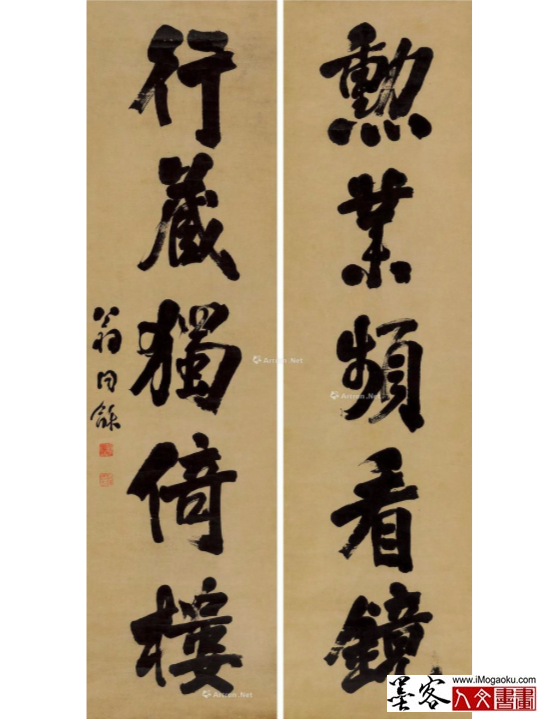 勲業頻看鏡
行藏獨倚樓
翁同龢
Artron.Net
Artron.Net
Artron.Net
Artron.Net
墨客
www.iMogaoku.com
人文書畫